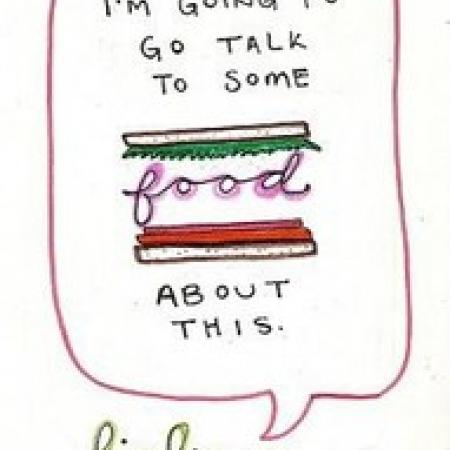 I'M GOING TO
GO TALK
TO SOME
food
ABOUT
THIS.